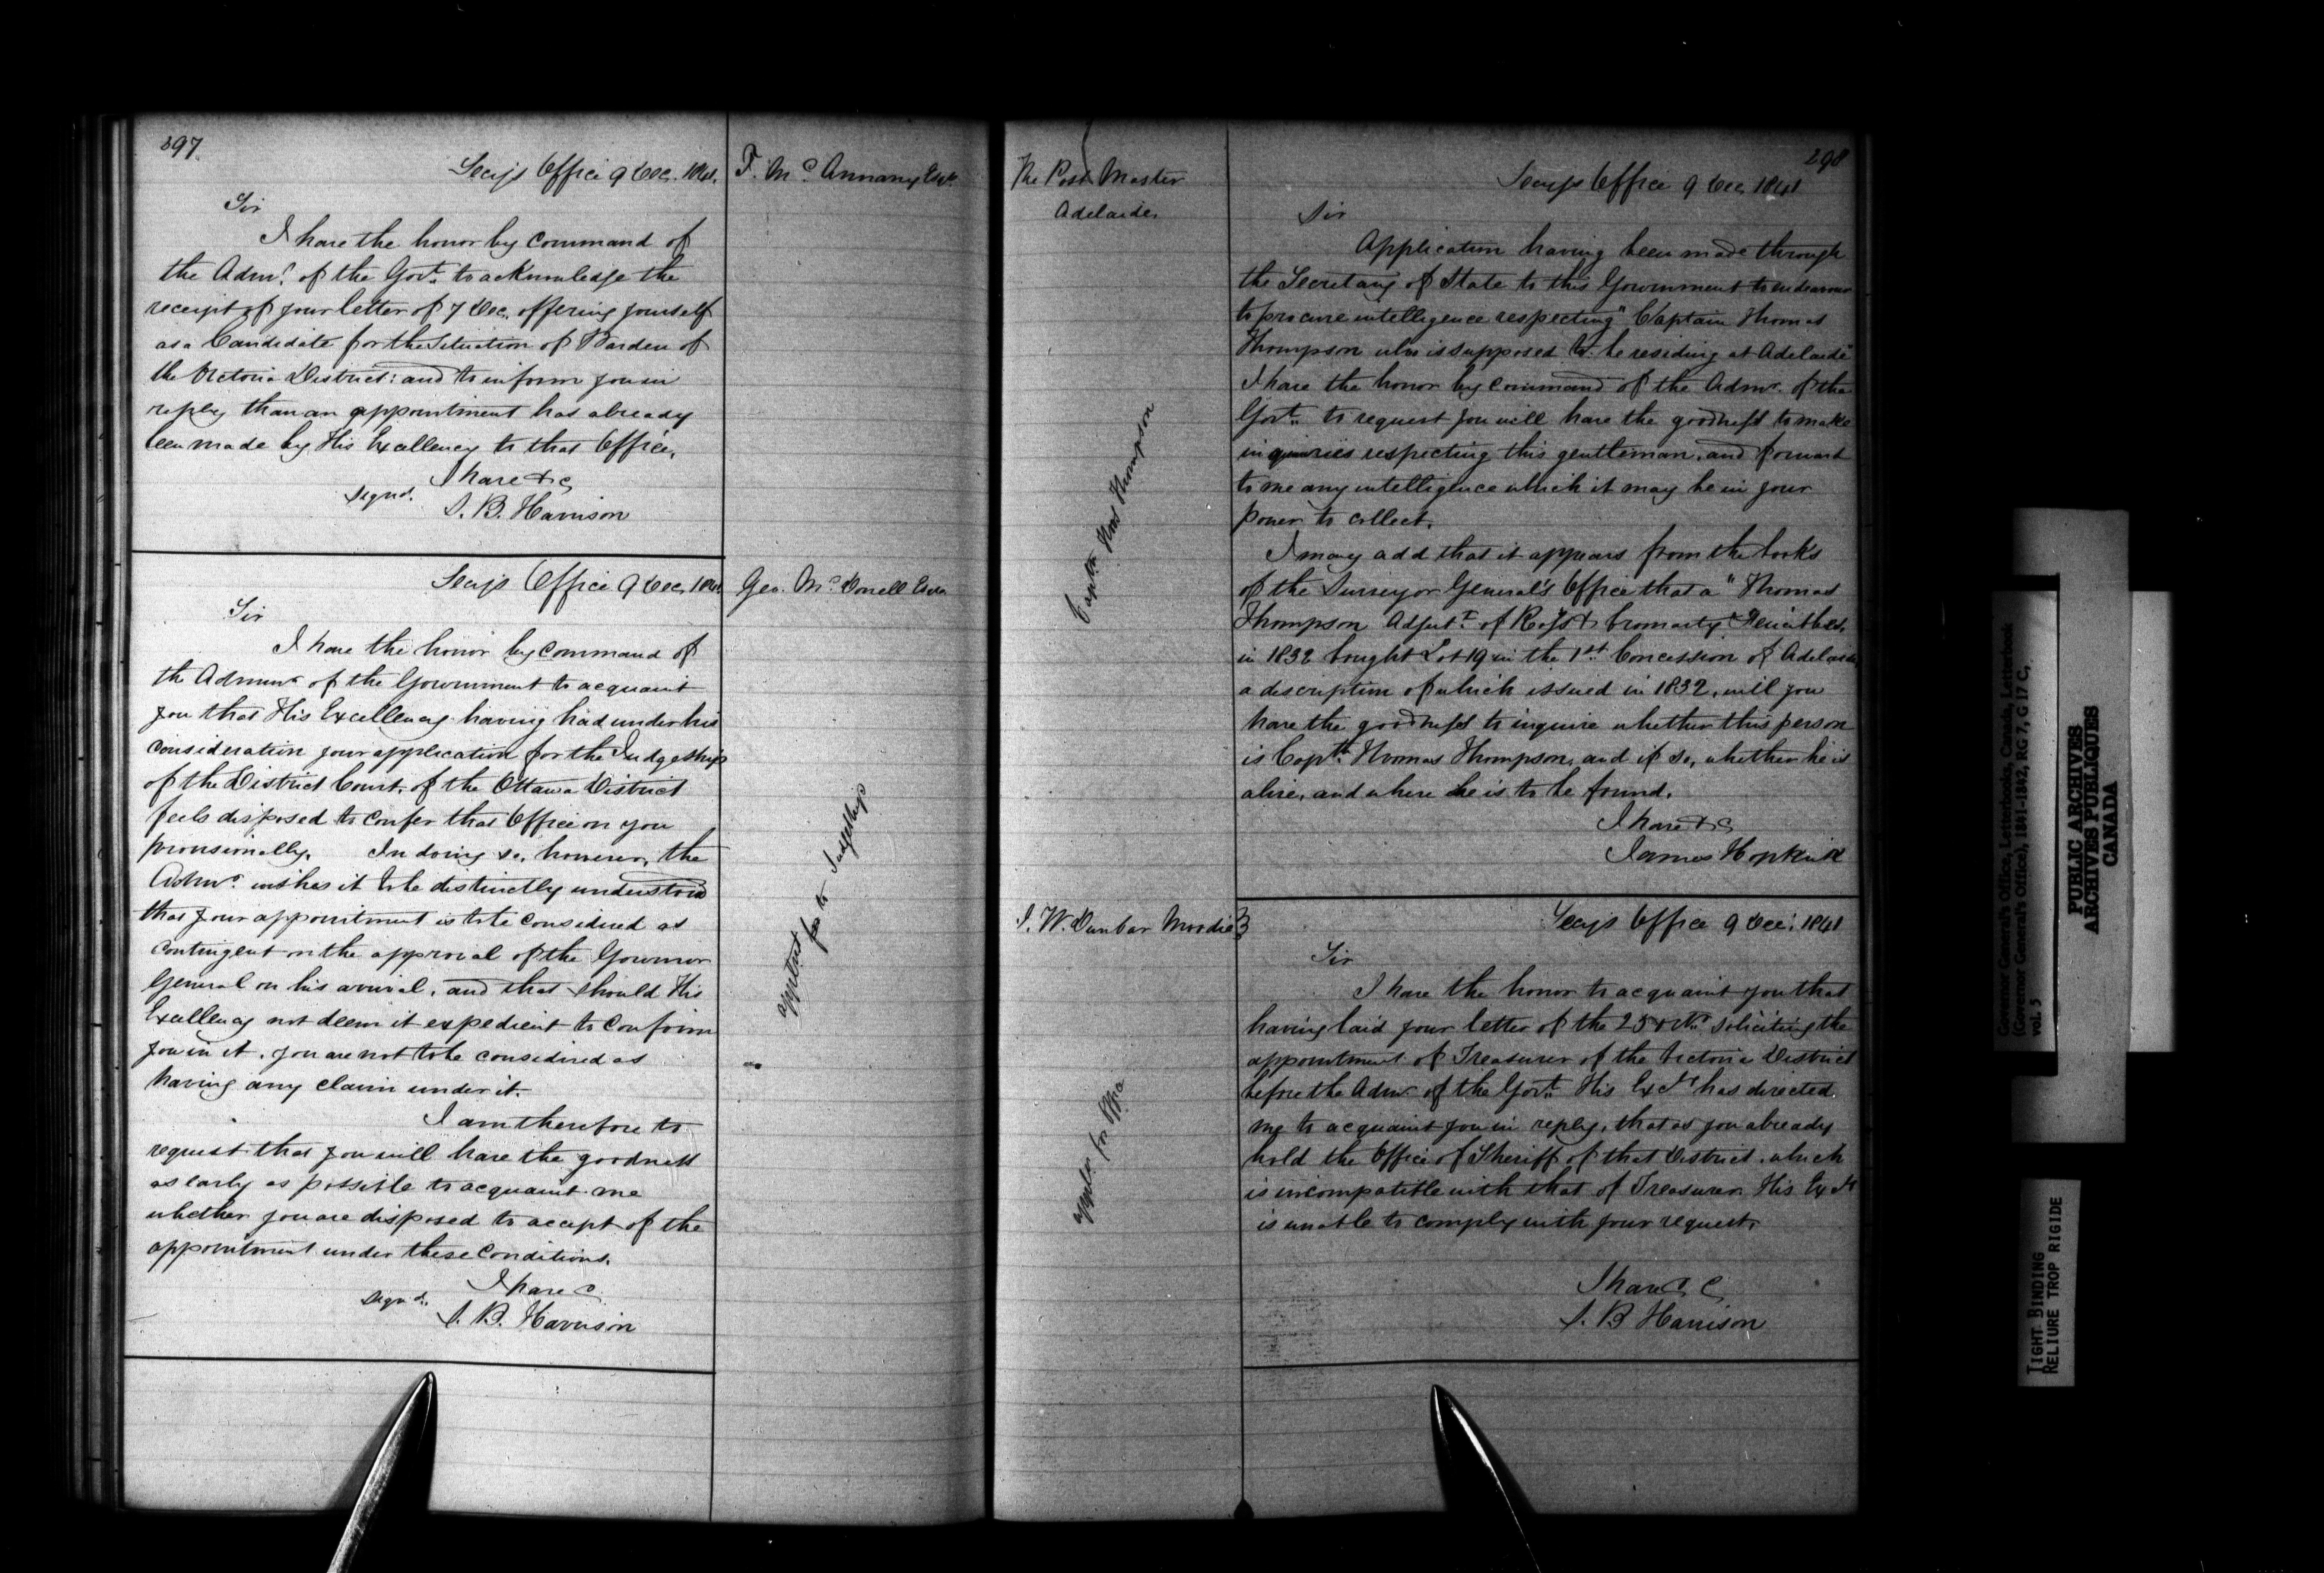 297
Secy's Office 9 Dec. 1841.
T. Mc Annany Esqr
Sir
I have the honor by Command of
the Admr. of the Govt. to acknowledge the
receipt of your letter of 7 Dec. offering yourself
as a Candidate for the Situation of Warden of
the Victoria District: and to inform you in
reply than an appointment has already
been made by His Excellency to that Office.
I have &c
signd. S. B. Harrison
Secys Office 9 Dec, 1841
Geo. Mc Donell Esqr
Sir
I have the honor by Command of
the Admr of the Government to acquaint
you that His Excellency having had under his
consideration your application for the Judgeship
of the District Court, of the Ottawa District
feels disposed to confer that Office on you
provisionally. In doing so, however, the
Admr. wishes it to be distinctly understood
that your appointment is to be considered as
contingent on the approval of the Governor
General on his arrival, and that should His
Excellency not deem it expedient to confirm
you in it, you are not to be considered as
having any claim under it.
I am therefore to
request that you will have the goodness
as early as possible to acquaint me
whether you are disposed to accept of the
appointment under these Conditions.
I have &c
signd. S. B. Harrison
to Judgeship
298
The Post Master
Adelaide
Secys Office 9 Dec, 1841
Sir
Application having been made through
the Secretary of State to this Government to endeavour
to procure intelligence respecting "Captain Thomas
Thompson who is supposed to be residing at Adelaide"
I have the honor by command of the Admr. of the
Govt. to request you will have the goodness to make
inquiries respecting this gentleman, and forward
to me any intelligence which it may be in your
power to collect.
I may add that it appears from the books
of the Surveyor General's Office that a "Thomas
Thompson Adjutt. of Ross & Cromarty Fencibles,
in 1832 bought Lot 19 in the 1st Concession of Adelaide
a description of which issued in 1832, will you
have the goodness to inquire whether this person
is Captn. Thomas Thompson, and if so, whether he is
alive, and where he is to be found.
I have &c
James Hopkirk
Captn Thos Thompson
J. W. Dunbar Moodie
Secys Office 9 Dec. 1841
Sir
I have the honor to acquaint you that
having laid your letter of the 25 octr. soliciting the
appointment of Treasurer of the Victoria District
before the Admr of the Govt. His Exy has directed
me to acquaint you in reply, that as you already
hold the Office of Sheriff of that District, which
is incompatible with that of Treasurer His Exy
is unable to comply with your request.
I have &c
S. B Harrison
for Office
Governor General's Office, Letterbooks, Canada, Letterbook
(Governor General's Office), 1841-1842, RG 7, G 17 C,
vol. 5
PUBLIC ARCHIVES
ARCHIVES PUBLIQUES
CANADA
TIGHT BINDING
RELIURE TROP RIGIDE